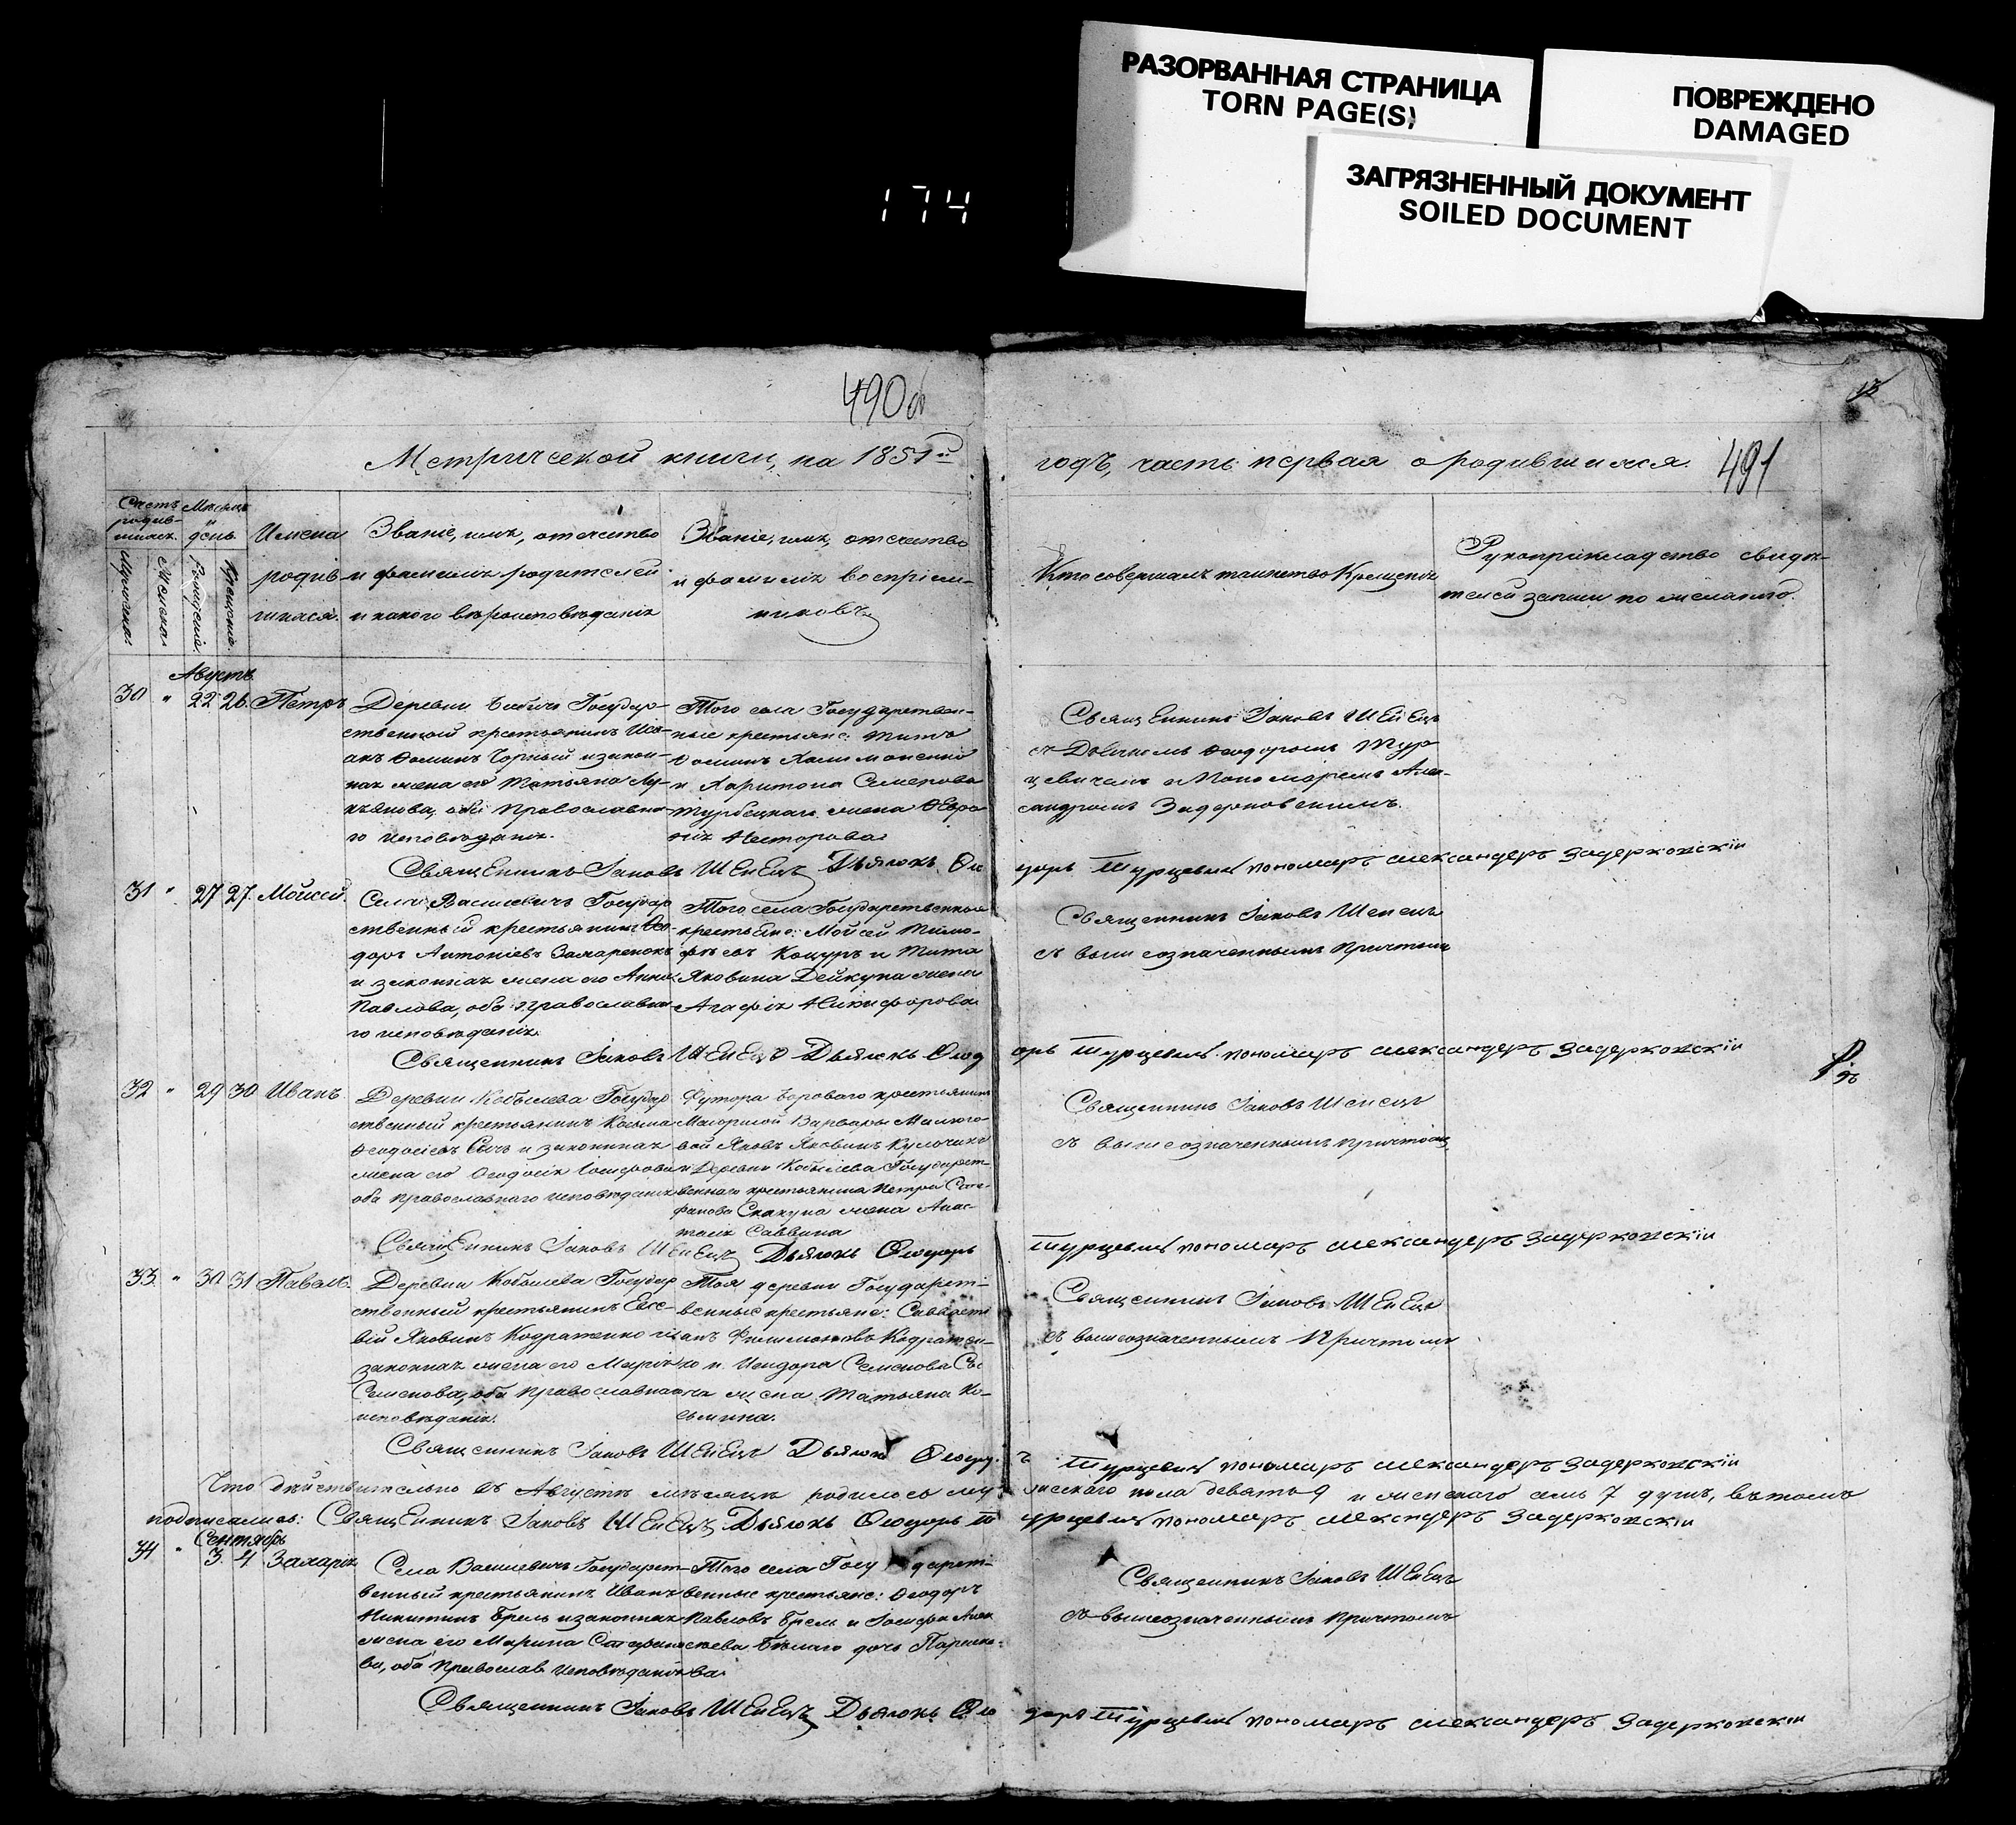 РАЗОРВАННАЯ СТРАНИЦА
TORN PAGE(S)
ПОВРЕЖДЕНО
DAMAGED
ЗАГРЯЗНЕННЫЙ ДОКУМЕНТ
SOILED DOCUMENT
174
490об
13
Метрической книги, на 1851й
годъ, часть первая о родившихся.
491
Счетъ родив-шихся.
Мѣсяцъ и день.
Мужеска.
Женска.
Рожденія.
Крещенія.
Имена
родив-
шихся.
Званіе, имя, отчество
и фамилія родителей
и какого вѣроисповѣданія
Званіе, имя, отчество
и фамилія воспріем-
никовъ
Кто совершалъ таинство Крещенія
Рукоприкладство свидѣ-
телей записи по желанію.
Августъ
30 " 22 26 Петръ
Деревни Государ-
ственной крестьянинъ Ив-
анъ Ѳоминъ Чорный и закон-
ная жена его Татьяна Лу-
кьянова, оба Православна-
го исповѣданія.
Того села Государствен-
ные крестьяне: Титъ
Ѳоминъ
и Харитона Семенова
жена Февро-
нія Несторова
Священникъ Іаковъ Шенецъ
съ Дьячкомъ Ѳеодоромъ Тур-
цевичемъ и Пономаремъ Алек-
сандромъ Задерковскимъ.
Священникъ Іаковъ Шенецъ Дьячокъ Ѳео
доръ Турцевичъ пономаръ александеръ Задерковскій
31 " 27 27 Мойсей.
Села Василевичъ Государ
ственный крестьянинъ Ѳео-
доръ Антоніевъ
и законная жена его Анна
Павлова, оба православна-
го исповѣданія.
Того села Государственные
крестьяне: Мойсей Тимо-
фѣевъ Коцуръ и Тита
Яковина Дейкуна жена
Агафія Никифорова
Священникъ Іаковъ Шенецъ
съ вышеозначеннымъ причтомъ
Священникъ Іаковъ Шенецъ Дьячокъ Ѳеод
оръ Турцевичъ пономаръ александеръ Задерковскій
32 " 29 30 Иванъ.
Деревни Кобылева Государ
ственный крестьянинъ Косьма
Ѳеодосіевъ Сычъ и законная
жена его Ѳеодосія Іосифова
оба православнаго исповѣданія
Футора Бороваго крестьянинъ
Варвары
Яковъ Яковинъ
и Деревни Кобылева Государст-
веннаго крестьянина Петра Сте-
фанова Скакуна жена Анас-
тасія Саввина
Священникъ Іаковъ Шенецъ
съ вышеозначеннымъ причтомъ
Священникъ Іаковъ Шенецъ Дьячокъ Ѳеодоръ
Турцевичъ пономаръ александеръ Задерковскій
33 " 30 31 Павелъ.
Деревни Кобылева Государ
ственный крестьянинъ Евсе-
вій Яковинъ Кодратенко и
законная жена его Марія
Семенова, оба Православнаго
исповѣданія.
Тоя деревни Государст-
венные крестьяне: Саваст-
анъ Филимоновъ Кодратен-
ко и Исидора Семенова Сы-
ча жена Татьяна Ко-
сьмина.
Священникъ Іаковъ Шенецъ
съ вышеозначеннымъ Причтомъ
Священникъ Іаковъ Шенецъ Дьячокъ Ѳеодор
ъ Турцевичъ пономаръ александеръ Задерковскій
Что дѣйствительно въ Августѣ мѣсяцѣ родилось му
жескаго пола девять 9 и женскаго семь 7 душъ, въ томъ
подписались: Священникъ Іаковъ Шенецъ Дьячокъ Ѳеодоръ Т
урцевичъ пономаръ александеръ Задерковскій
Сентябрь
34 " 3 4 Захарія
Села Василевичъ Государст-
венный крестьянинъ Иванъ
Никитинъ Брель и законная
жена его Марина Стефано-
ва, оба Православ исповѣданія
Того села Государст-
венные крестьяне: Ѳеодоръ
Павловъ Брель и Іосифа Алек
сѣева Бѣлаго дочь Параске-
ва.
Священникъ Іаковъ Шенецъ
съ вышеозначеннымъ причтомъ
Священникъ Іаковъ Шенецъ Дьячокъ Ѳео
доръ Турцевичъ пономаръ александеръ Задерковскій